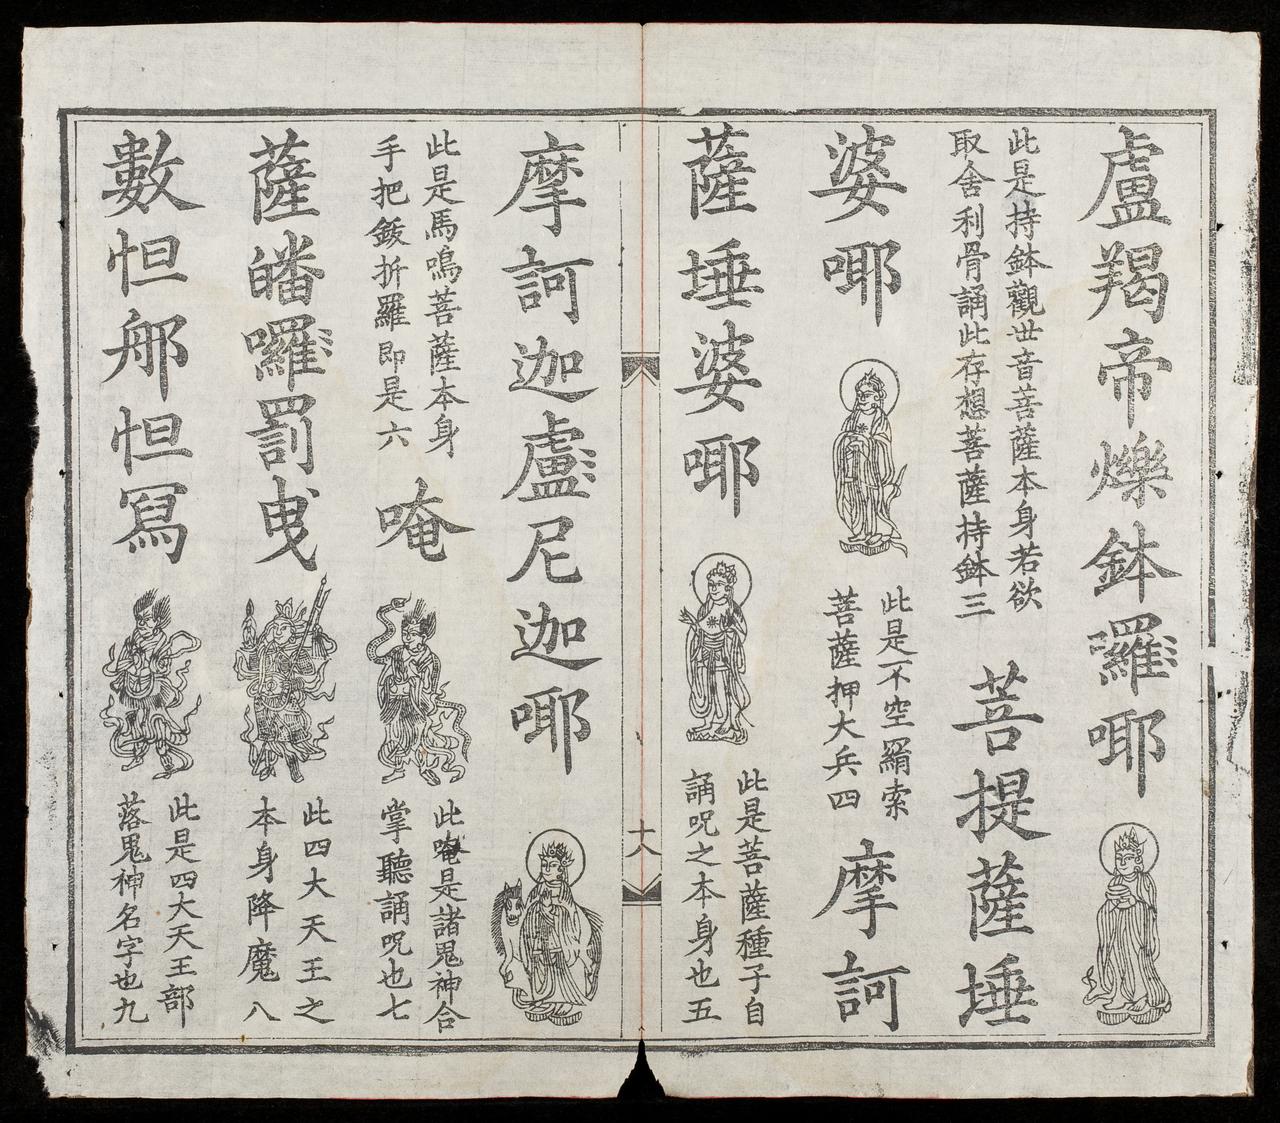 盧羯帝爍鉢囉耶
此是持鉢觀世音菩薩本身若欲
取舍利骨誦此存想菩薩持鉢三
菩提薩埵
婆耶
此是不空羂索
菩薩押大兵四
摩訶
薩埵婆耶
此是菩薩種子自
誦呪之本身也五
十八
摩訶迦盧尼迦耶
此是馬鳴菩薩本身
手把鈸折羅即是六
唵
此唵是諸鬼神合
掌聽誦呪也七
薩皤囉罰曳
此四大天王之
本身降魔八
數怛那怛寫
此是四大天王部
落鬼神名字也九